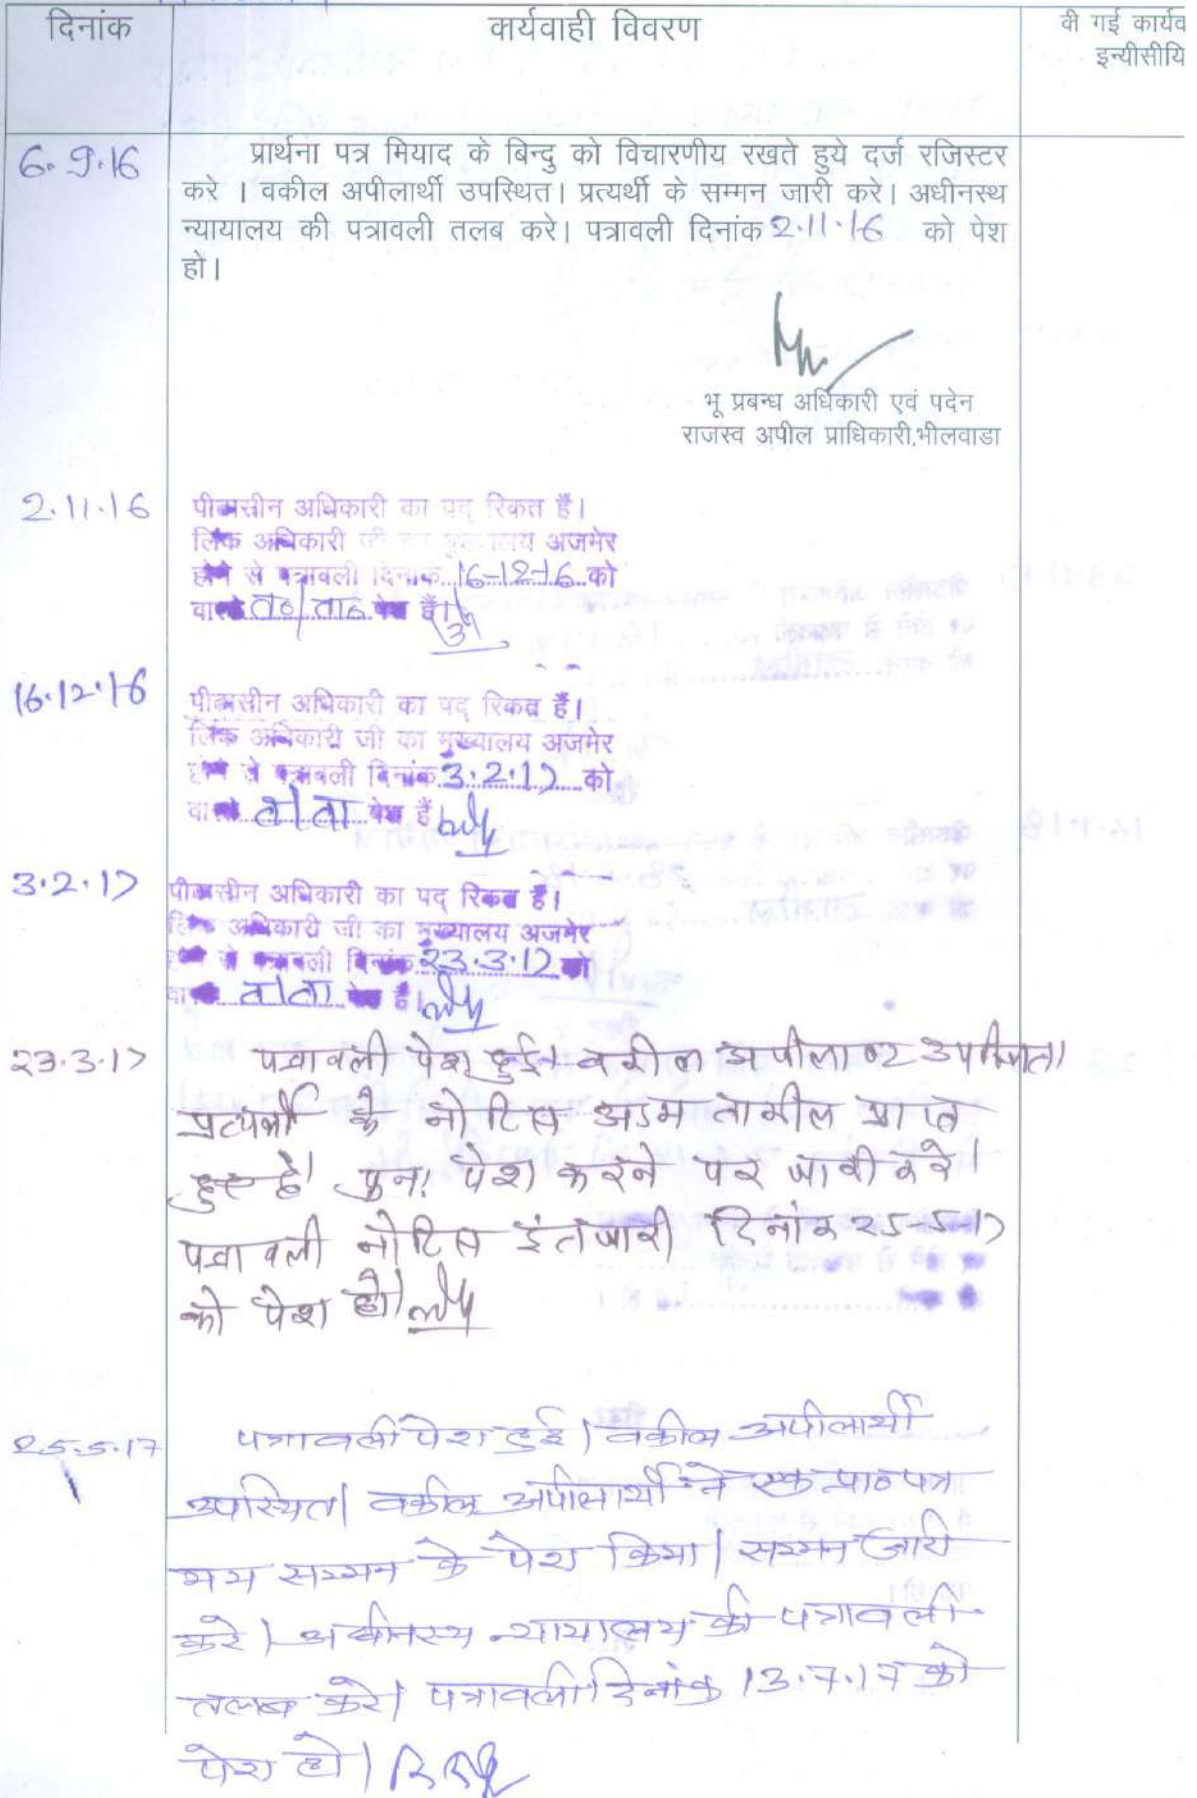 दिनांक
कार्यवाही विवरण
की गई कार्यव
इन्यीसीयि
6.9.16
प्रार्थना पत्र मियाद के बिन्दु को विचारणीय रखते हुये दर्ज रजिस्टर
करे । वकील अपीलार्थी उपस्थित। प्रत्यर्थी के सम्मन जारी करे। अधीनस्थ
न्यायालय की पत्रावली तलब करे। पत्रावली दिनांक 2.11.16 को पेश
हो।
भू प्रबन्ध अधिकारी एवं पदेन
राजस्व अपील प्राधिकारी,भीलवाडा
2.11.16
पीठासीन अधिकारी का पद रिक्त है।
लिंक अधिकारी जी का मुख्यालय अजमेर
होने से पत्रावली दिनांक 16-12-16 को
वास्ते त0/ता0 पेश हैं।
16.12.16
पीठासीन अधिकारी का पद रिक्त है।
लिंक अधिकारी जी का मुख्यालय अजमेर
होने से पत्रावली दिनांक 3.2.17 को
वास्ते त/ता पेश हैं
3.2.17
पीठासीन अधिकारी का पद रिक्त है।
लिंक अधिकारी जी का मुख्यालय अजमेर
होने से पत्रावली दिनांक 23.3.17 को
वास्ते त/ता पेश है।
23.3.17
पत्रावली पेश हुई। वकील अपीलाण्ट उपस्थित।
प्रत्यर्थी के नोटिस अदम तामील प्राप्त
हुए है। पुनः पेश करने पर जारी करे।
पत्रावली नोटिस इंतजारी दिनांक 25-5-17
को पेश हो।
25.5.17
पत्रावली पेश हुई। वकील अपीलार्थी
उपस्थित। वकील अपीलार्थी ने एक प्रा0 पत्र
मय सम्मन के पेश किया। सम्मन जारी
करे। अधीनस्थ न्यायालय की पत्रावली
तलब करे। पत्रावली दिनांक 13.7.17 को
पेश हो।